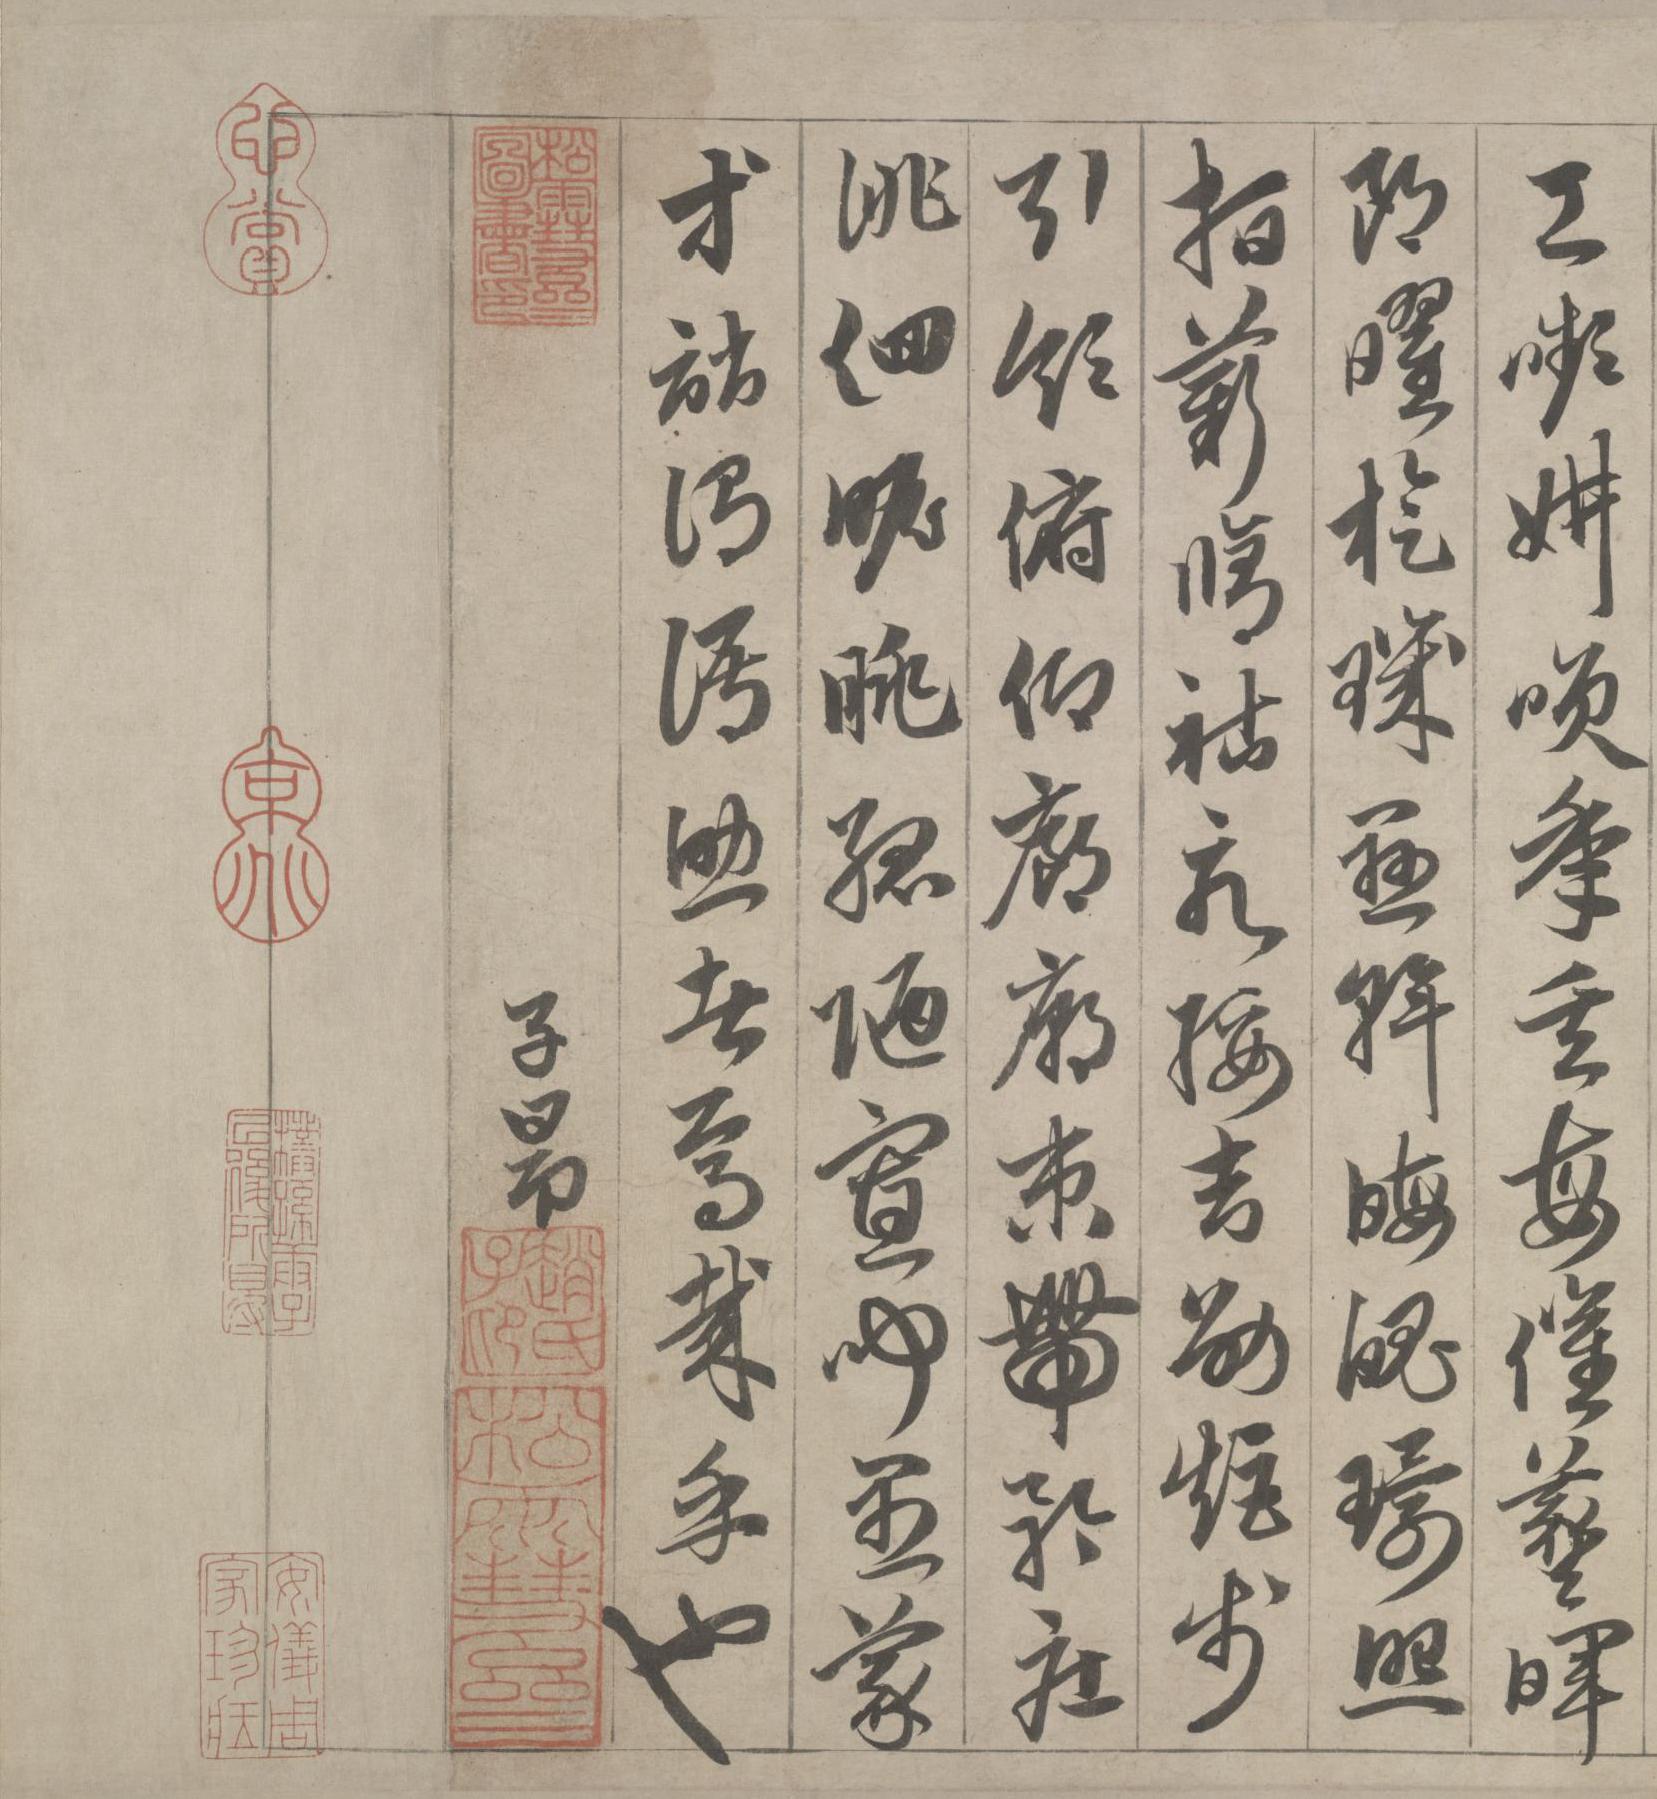 工嚬妍笑年矢每催羲暉
朗曜旋璣懸斡晦魄環照
指薪脩祜永綏吉劭矩步
引領俯仰廊廟束帶矜莊
徘徊瞻眺孤陋寡聞愚蒙
等誚謂語助者焉哉乎也
松雪齋圖書印
子昂
趙氏子昂
松雪齋
心賞
安儀周家珍藏